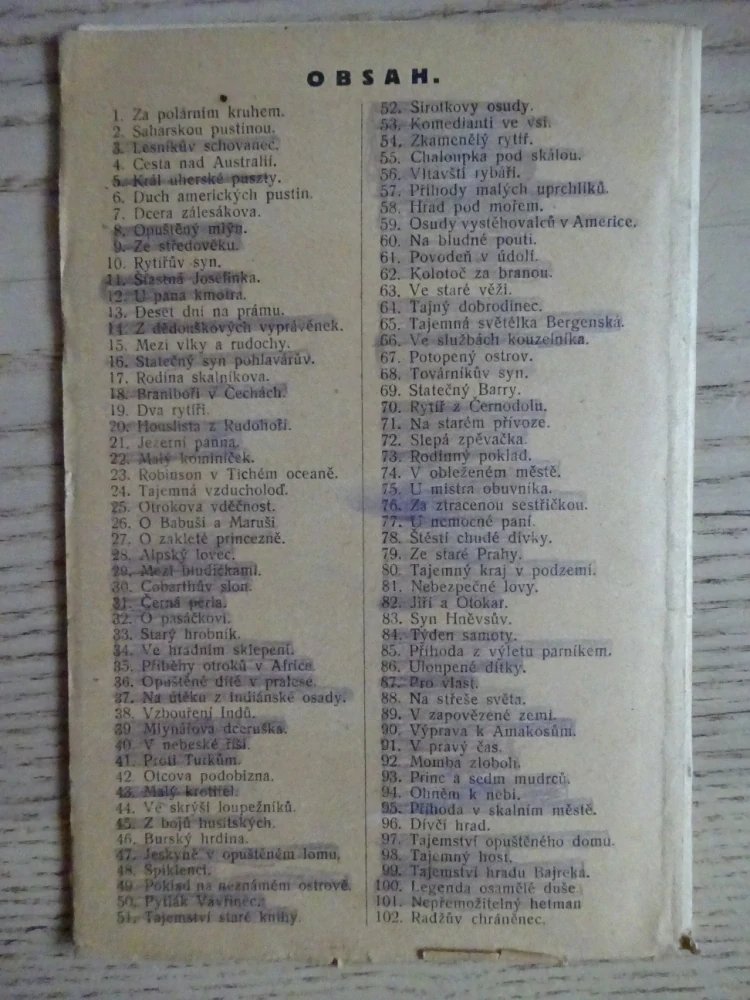 OBSAH.
1. Za polárním kruhem.
2. Saharskou pustinou.
3. Lesníkův schovanec.
4. Cesta nad Australií.
5. Král uherské puszty.
6. Duch amerických pustin.
7. Dcera zálesákova.
8. Opuštěný mlýn.
9. Ze středověku.
10. Rytířův syn.
11. Šťastná Josefinka.
12. U pana kmotra.
13. Deset dní na prámu.
14. Z dědouškových vyprávěnek.
15. Mezi vlky a rudochy.
16. Statečný syn pohlavárův.
17. Rodina skalníkova.
18. Braniboři v Čechách.
19. Dva rytíři.
20. Houslista z Rudohoří.
21. Jezerní panna.
22. Malý kominíček.
23. Robinson v Tichém oceaně.
24. Tajemná vzducholoď.
25. Otrokova vděčnost.
26. O Babuši a Maruši
27. O zakleté princezně.
28. Alpský lovec.
29. Mezi bludičkami.
30. Cobarthův slon.
31. Černá perla.
32. O pasáčkovi.
33. Starý hrobník.
34. Ve hradním sklepení.
35. Příběhy otroků v Africe.
36. Opuštěné dítě v pralese.
37. Na útěku z indiánské osady.
38. Vzbouření Indů.
39. Mlynářova dceruška.
40. V nebeské říši.
41. Proti Turkům.
42. Otcova podobizna.
43. Malý krotitel.
44. Ve skrýši loupežníků.
45. Z bojů husitských.
46. Burský hrdina.
47. Jeskyně v opuštěném lomu.
48. Spiklenci.
49. Poklad na neznámém ostrově.
50. Pytlák Vavřinec.
51. Tajemství staré knihy.
52. Sirotkovy osudy.
53. Komedianti ve vsi.
54. Zkamenělý rytíř.
55. Chaloupka pod skálou.
56. Vltavští rybáři.
57. Příhody malých uprchlíků.
58. Hrad pod mořem.
59. Osudy vystěhovalců v Americe.
60. Na bludné pouti.
61. Povodeň v údolí.
62. Kolotoč za branou.
63. Ve staré věži.
64. Tajný dobrodinec.
65. Tajemná světélka Bergenská.
66. Ve službách kouzelníka.
67. Potopený ostrov.
68. Továrníkův syn.
69. Statečný Barry.
70. Rytíř z Černodolu.
71. Na starém přívoze.
72. Slepá zpěvačka.
73. Rodinný poklad.
74. V obleženém městě.
75. U mistra obuvníka.
76. Za ztracenou sestřičkou.
77. U nemocné paní.
78. Štěstí chudé dívky.
79. Ze staré Prahy.
80. Tajemný kraj v podzemí.
81. Nebezpečné lovy.
82. Jiří a Otokar.
83. Syn Hněvsův.
84. Týden samoty.
85. Příhoda z výletu parníkem.
86. Uloupené dítky.
87. Pro vlast.
88. Na střeše světa.
89. V zapovězené zemi.
90. Výprava k Amakosům.
91. V pravý čas.
92. Momba zloboh.
93. Princ a sedm mudrců.
94. Ohněm k nebi.
95. Příhoda v skalním městě.
96. Dívčí hrad.
97. Tajemství opuštěného domu.
98. Tajemný host.
99. Tajemství hradu Bajreka.
100. Legenda osamělé duše.
101. Nepřemožitelný hetman
102. Radžův chráněnec.